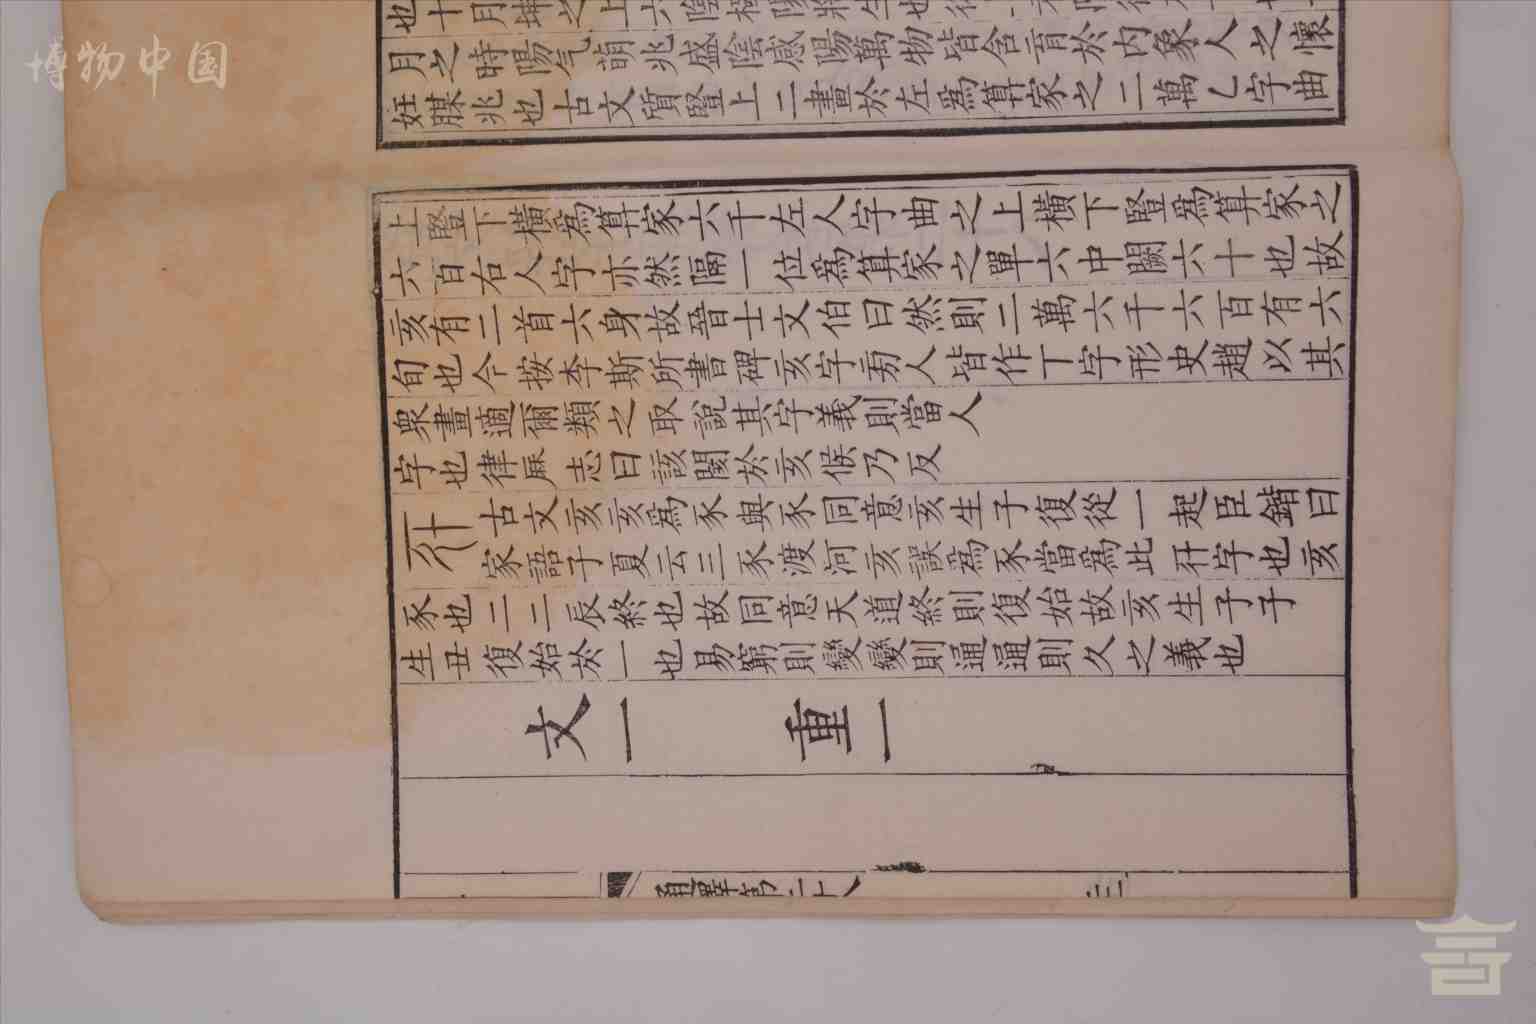 博物中国
月之時陽气萌兆盛陰感陽萬物皆含育於内象人之懷
妊腜兆也古文質豎上二畫於左為算家之二萬乙字曲
上豎下橫為算家六千左人字曲之上橫下豎為算家之
六百右人字亦然隔一位為算家之單六中闕六十也故
亥有二首六身故晉士文伯曰然則二萬六千六百有六
旬也今按李斯所書碑亥字旁人皆作丅字形史趙以其
眾畫適爾類之取說其字義則當人
字也律厤志曰該閡於亥候乃反
古文亥亥為豕與豕同意亥生子復從一起臣鍇曰
家語子夏云三豕渡河亥誤為豕當為此字也亥
豕也二二辰終也故同意天道終則復始故亥生子子
生丑復始於一也易窮則變變則通通則久之義也
文一 重一
通釋第二十八